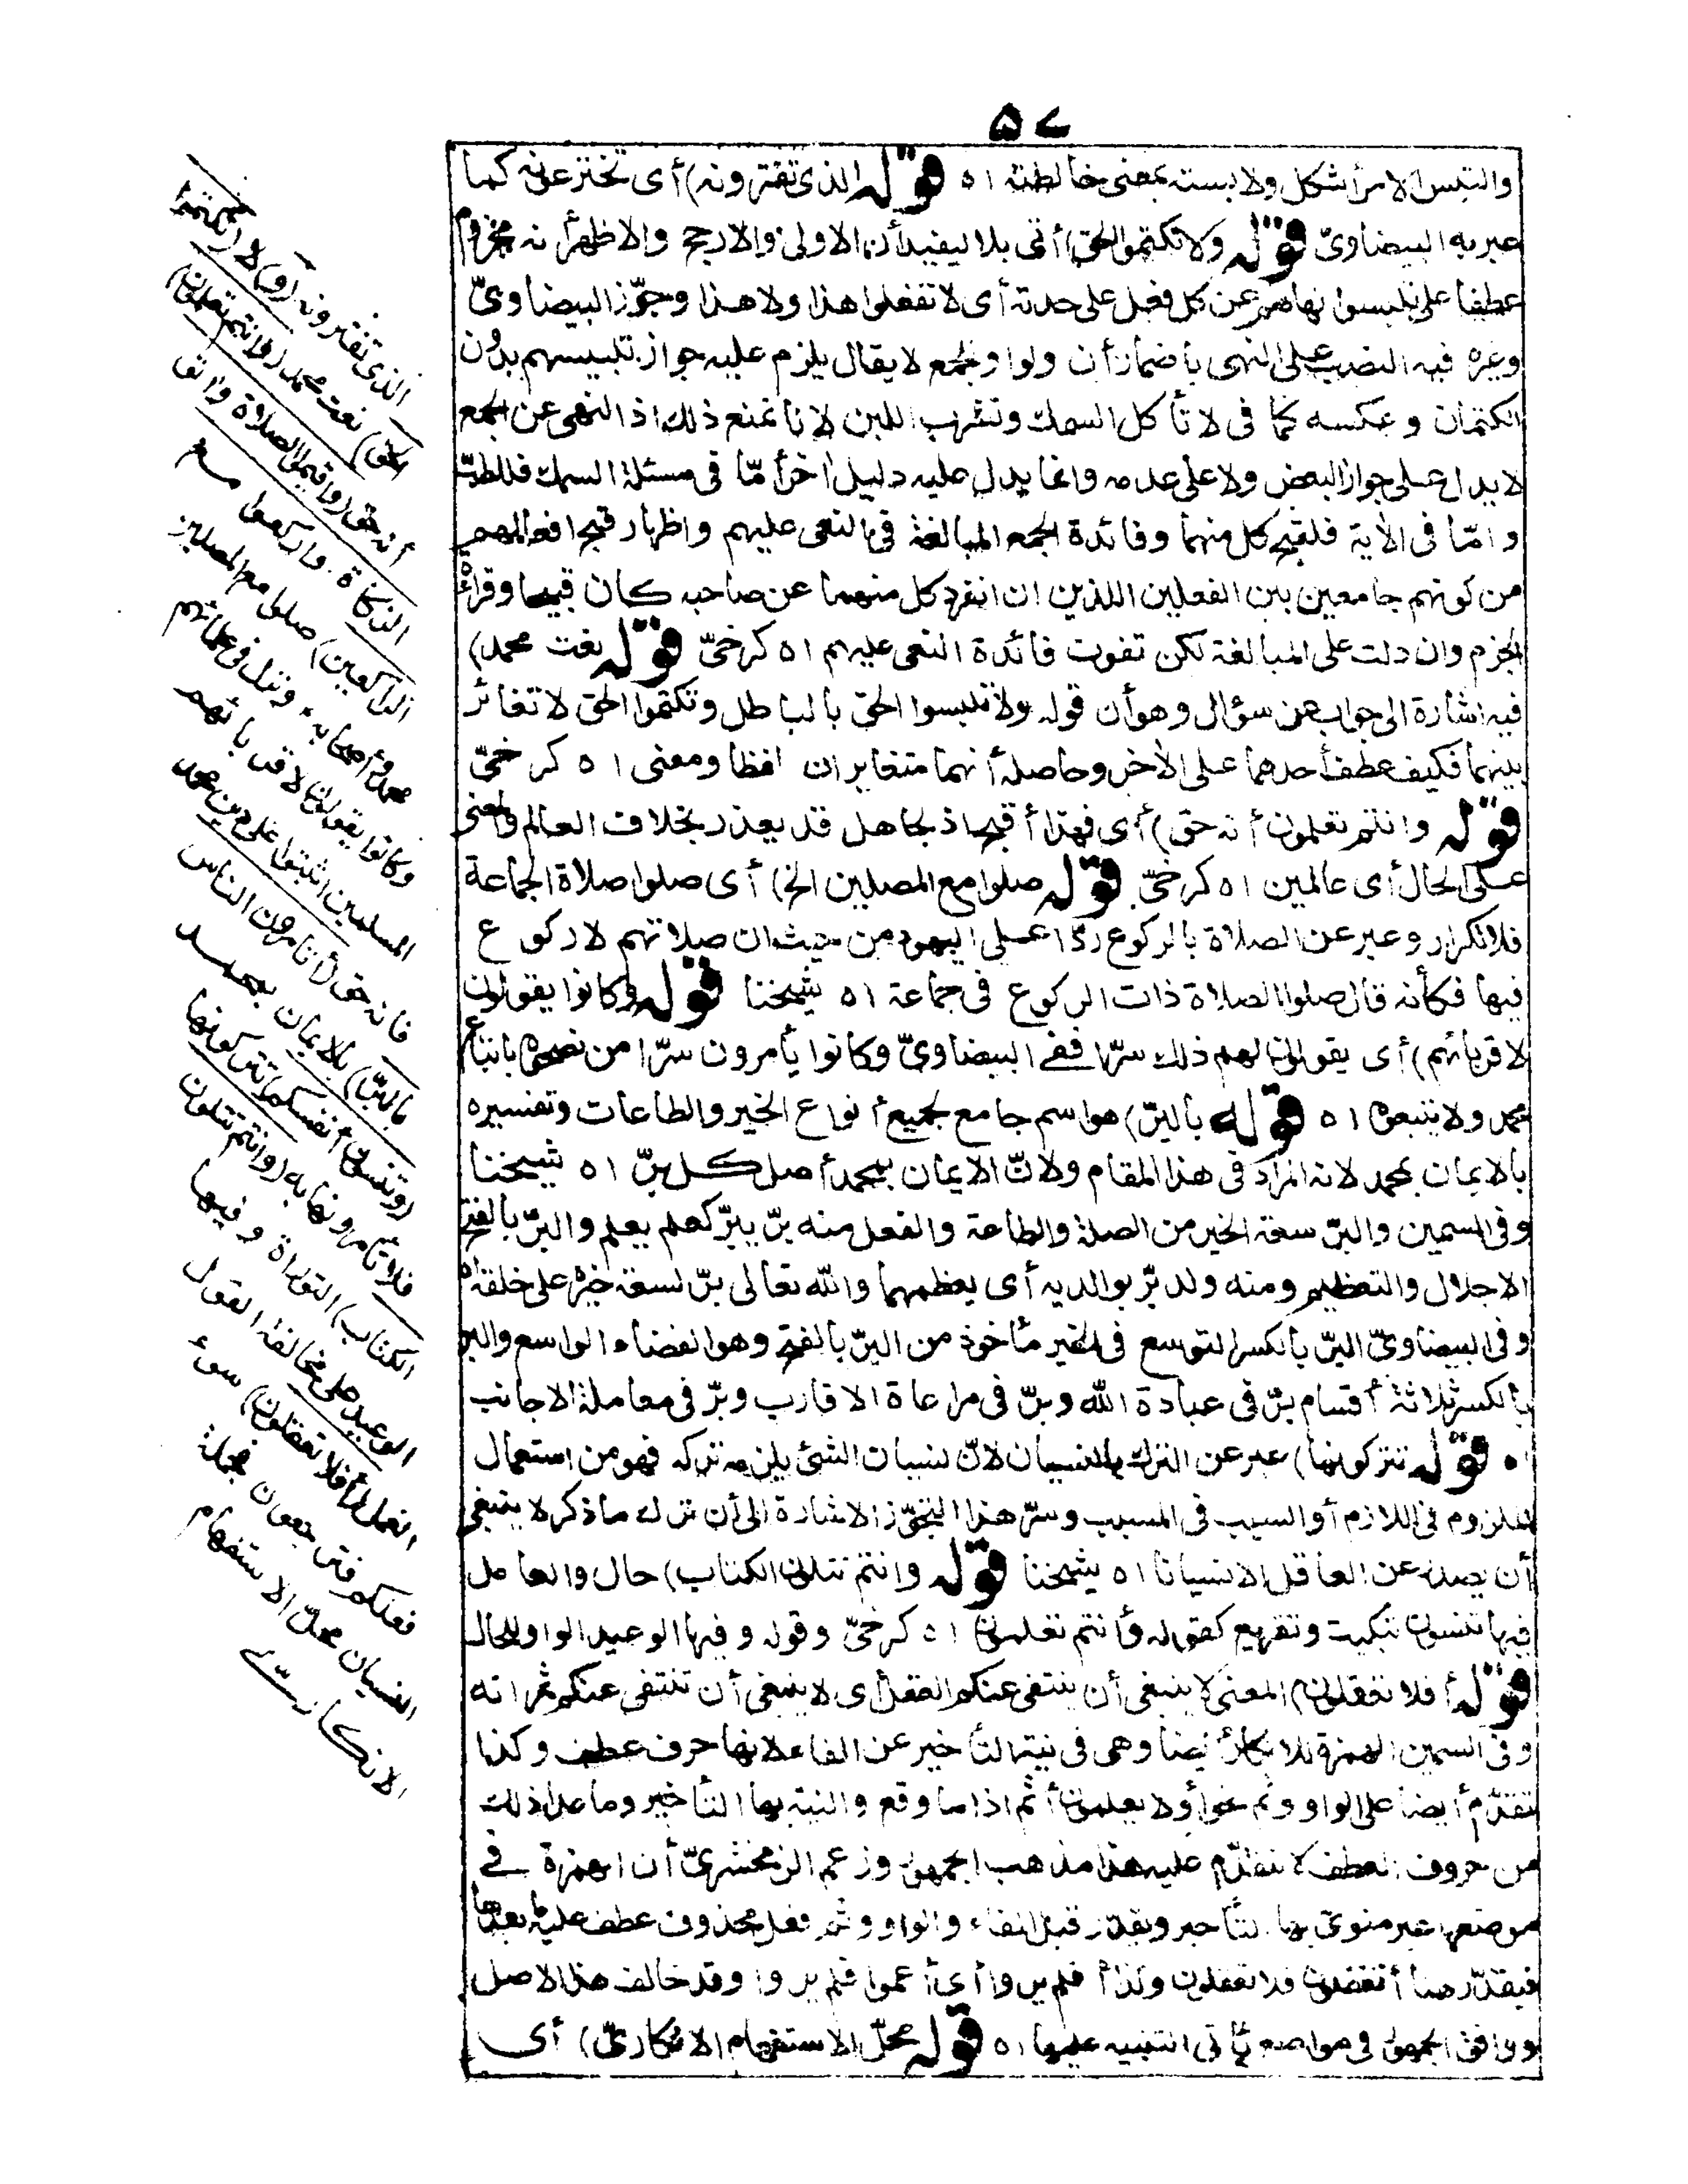 ۵۷
والتبس الامر أشكل ولابسته بمعنى خالطته ا ه قوله الذى تفترونه) أى تخترعونه كما
عبر به البيضاوىّ قوله ولا تكتموا الحق) أتى بلا ليفيد أن الاولى والارجح والاظهر أنه مجزوم
عطفا على تلبسوا نهاهم عن كل فعل على حدته أى لا تفعلوا هذا ولا هذا وجوّز البيضاوىّ
وغيره فيه النصب على النهى باضمار أن ولواو الجمع لا يقال يلزم عليه جواز تلبيسهم بدون
الكتمان وعكسه كما فى لا تأكل السمك وتشرب اللبن لانا نمنع ذلك اذ النهى عن الجمع
لا يدل على جواز البعض ولا على عدمه وانما يدل عليه دليل اخر أمّا فى مسئلة السمك فللطبّ
وامّا فى الاٰية فلقبح كل منهما وفائدة الجمع المبالغة فى النعى عليهم واظهار قبح افعالهم
من كونهم جامعين بين الفعلين اللذين ان انفرد كل منهما عن صاحبه كان قبيحا وقراءة
الجزم وان دلت على المبالغة لكن تفوت فائدة النعى عليهم ا ه كرخىّ قوله نعت محمد)
فيه اشارة الى جواب عن سؤال وهو أن قوله ولا تلبسوا الحق بالباطل وتكتموا الحق لا تغائر
بينهما فكيف عطف أحدهما على الاٰخر وحاصله أنهما متغايران لفظا ومعنى ا ه كرخىّ
قوله وانتم تعلمون أنه حق) أى فهذا أقبح اذ الجاهل قد يعذر بخلاف العالم والمعنى
على الحال أى عالمين ا ه كرخىّ قوله صلوا مع المصلين الخ) أى صلوا صلاة الجماعة
فلا تكرار وعبر عن الصلاة بالركوع ردّا على اليهود من حيث ان صلاتهم لا ركوع
فيها فكأنه قال صلوا الصلاة ذات الركوع فى جماعة ا ه شيخنا قوله وكانوا يقولون
لاقربائهم) أى يقولون لهم ذلك سرّا ففى البيضاوىّ وكانوا يأمرون سرّا من نصحوه باتباع
محمد ولا يتبعونه ا ه قوله بالبرّ) هو اسم جامع لجميع أنواع الخير والطاعات وتفسيره
بالايمان بمحمد لانه المراد فى هذا المقام ولانّ الايمان بمحمد أصل كل برّ ا ه شيخنا
وفى السمين والبرّ سعة الخير من الصلة والطاعة والفعل منه برّ يبرّ كعلم يعلم والبرّ بالفتح
الاجلال والتعظيم ومنه ولد برّ بوالديه أى يعظمهما والله تعالى برّ لسعة خيره على خلقه ا ه
وفى البيضاوىّ البرّ بالكسر التوسع فى الخير مأخوذ من البرّ بالفتح وهو الفضاء الواسع والبر
بالكسر ثلاثة أقسام برّ فى عبادة الله وبرّ فى مراعاة الاقارب وبرّ فى معاملة الاجانب
ا ه قوله تتركونها) عبر عن الترك بالنسيان لانّ نسيان الشئ يلزمه تركه فهو من استعمال
الملزوم فى اللازم أو السبب فى المسبب وسرّ هذا التجوّز الاشارة الى أن ترك ما ذكر لا ينبغى
أن يصدر عن العاقل الا نسيانا ا ه شيخنا قوله وانتم تتلون الكتاب) حال والعامل
فيها تنسون تبكيت وتقريع كقوله وأنتم تعلمون ا ه كرخىّ وقوله وفيها الوعيد الواو للحال
قوله أفلا تعقلون) المعنى لا ينبغى أن ينتفى عنكم العقل أى لا ينبغى أن تنتفى عنكم ثمراته
وفى السمين الهمزة للانكار أيضا وهى فى نية التأخير عن الفاء لانها حرف عطف وكذا
تتقدّم أيضا على الواو وثم نحو أولا يعلمون أثم اذا ما وقع والنية بها التأخير وما عدا ذلك
من حروف العطف لا تتقدّم عليه هذا مذهب الجمهور وزعم الزمخشرىّ أن الهمزة فى
موضعها غير منوىّ بها التأخير ويقدّر قبل الفاء والواو وثم فعل محذوف عطف عليه ما بعدها
فيقدّر هنا أتغفلون فلا تعقلون وكذا أفلم يروا أى أعموا فلم يروا وقد خالف هذا الاصل
ووافق الجمهور فى مواضع يأتى التنبيه عليها ا ه قوله محلّ الاستفهام الانكارىّ) أى
الذى تفترونه (و) لا (تكتموا
الحق) نعت محمد (وانتم تعلمون)
أنه حق (واقيموا الصلاة واٰتوا
الزكاة واركعوا مع
الراكعين) صلوا مع المصلين
محمد وأصحابه ونزل فى علمائهم
وكانوا يقولون لاقربائهم
المسلمين اثبتوا على دين محمد
فانه حق (أتأمرون الناس
بالبرّ) بالايمان بمحمد
(وتنسون أنفسكم) تتركونها
فلا تأمرونها به (وانتم تتلون
الكتاب) التوراة وفيها
الوعيد على مخالفة القول
العمل (أفلا تعقلون) سوء
فعلكم فترجعون فجملة
النسيان محلّ الاستفهام
الانكارىّ